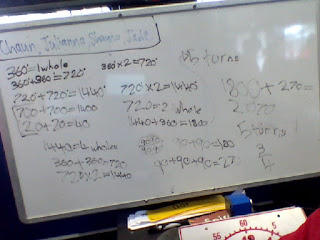 Chaun, Julianna, Shauna Jade
360°=1whole
360°+360°=720°
720°+720°=1440°
700+700=1400
20+20=40
1440=4 wholes
360+360=720
720×2=1440
360°×2=720°
720°×2=1440
720=2 whole
1440+360=1800
90+90=180
90+90+90=270
5 turns
1800+270=
2070
5 turns
3
4
55
60
5